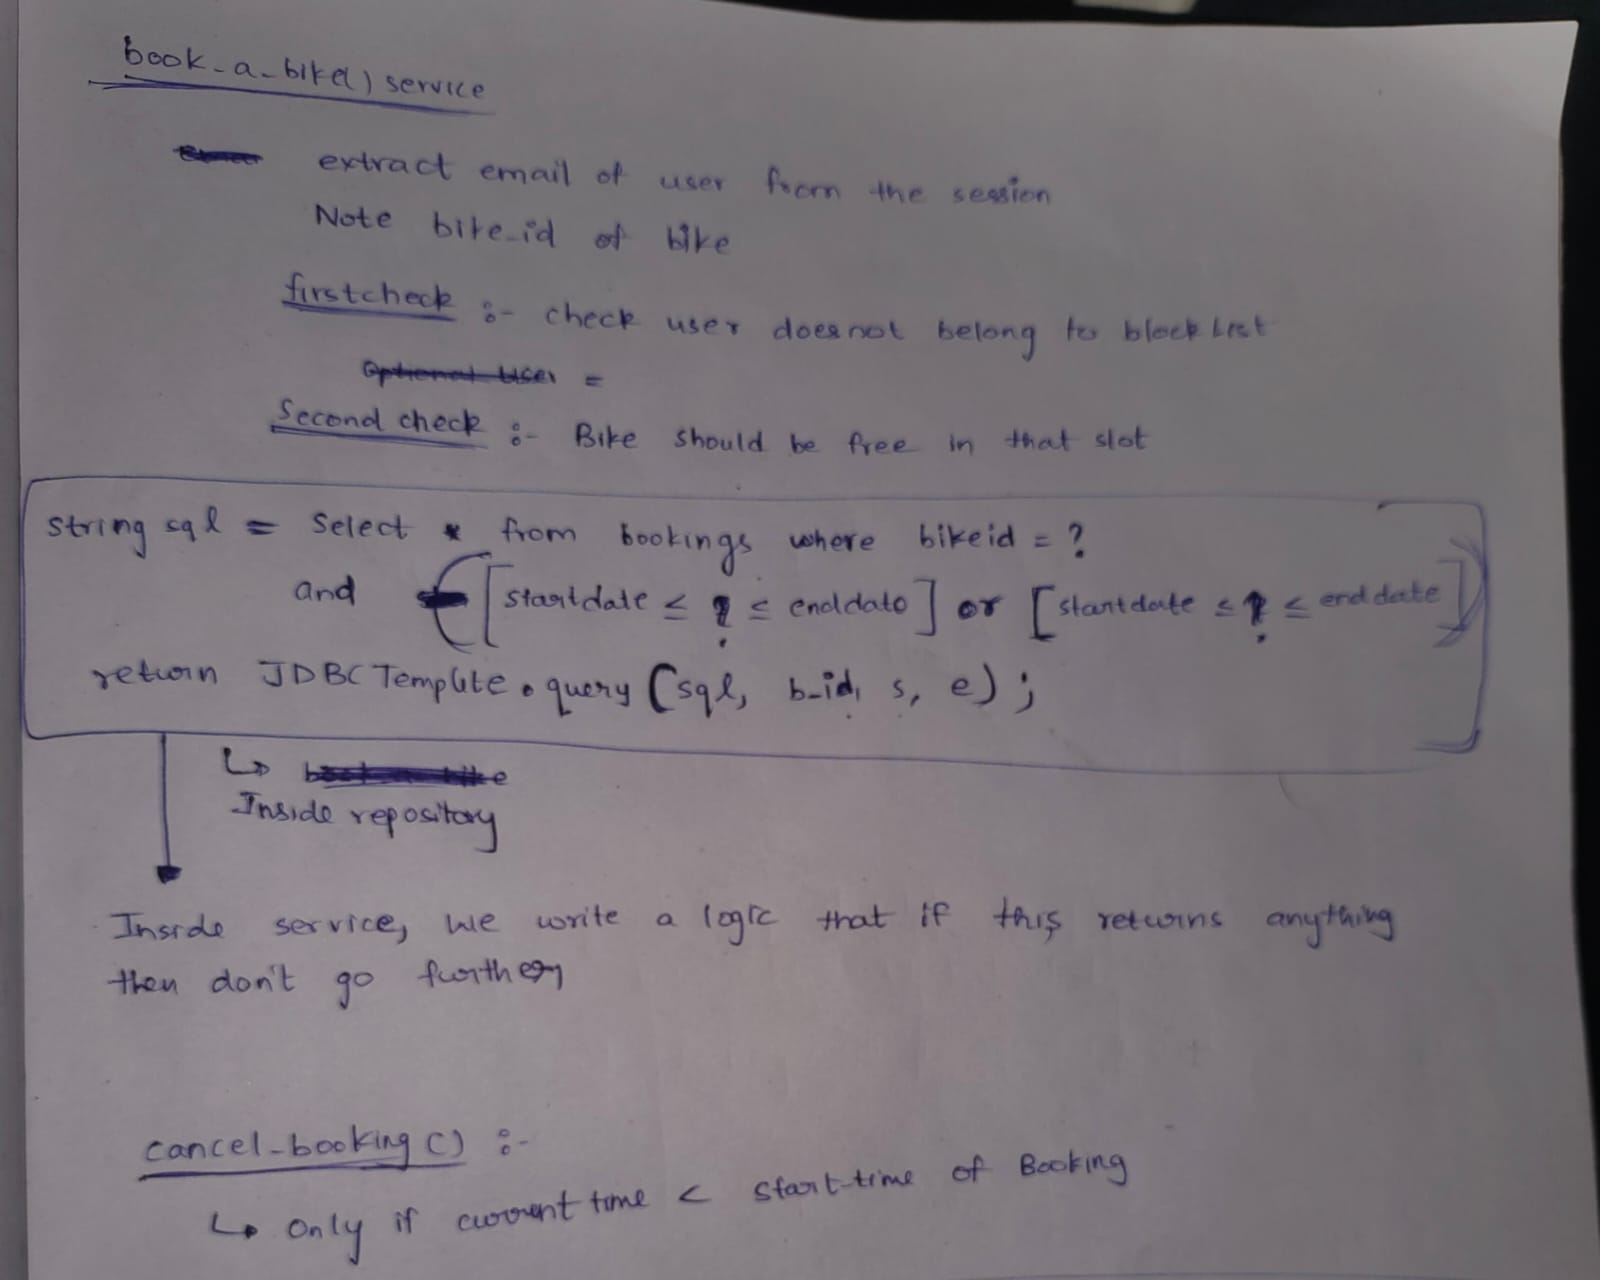 book_a_bike() service
extract email of user from the session
Note bike_id of bike
first check :- check user does not belong to block list
Optional User =
Second check :- Bike should be free in that slot
String sql = Select * from bookings where bikeid = ?
and ([startdate ≤ ? ≤ enddate] or [startdate ≤ ? ≤ enddate])
return JDBC Template.query (sql, b_id, s, e);
↳ book a bike
Inside repository
Inside service, we write a logic that if this returns anything
then don't go further
cancel_booking() :-
↳ only if current time < start-time of Booking